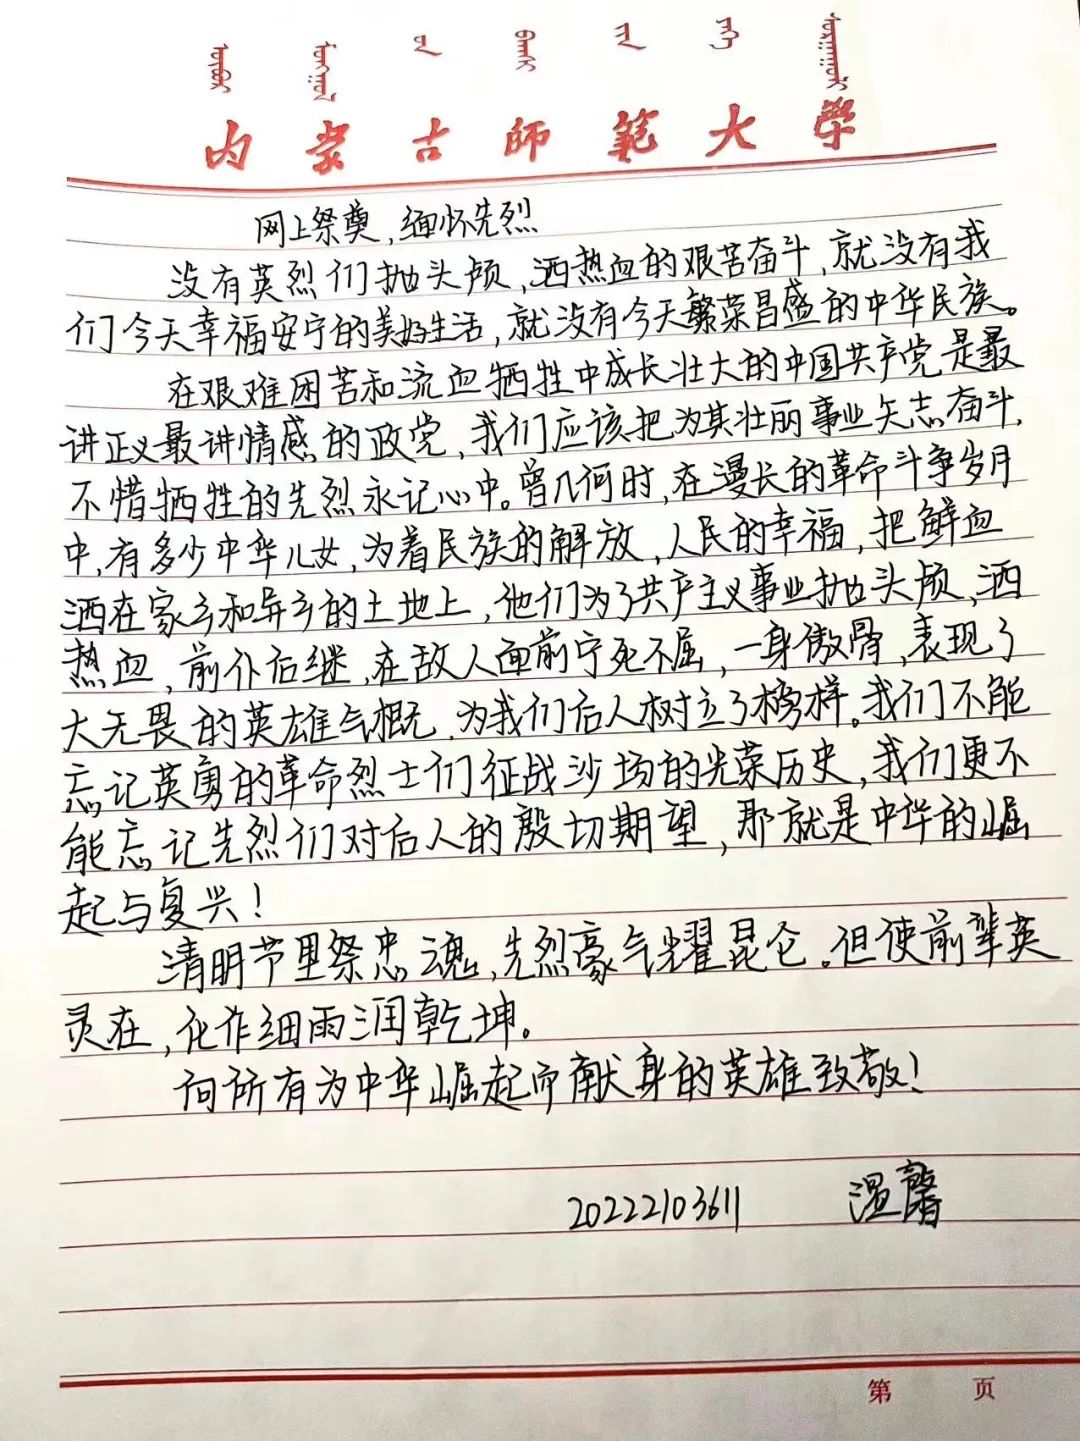 内蒙古师范大学
网上祭奠,缅怀先烈
没有英烈们抛头颅,洒热血的艰苦奋斗,就没有我
们今天幸福安宁的美好生活,就没有今天繁荣昌盛的中华民族。
在艰难困苦和流血牺牲中成长壮大的中国共产党是最
讲正义最讲情感的政党,我们应该把为其壮丽事业矢志奋斗,
不惜牺牲的先烈永记心中。曾几何时,在漫长的革命斗争岁月
中,有多少中华儿女,为着民族的解放,人民的幸福,把鲜血
洒在家乡和异乡的土地上,他们为了共产主义事业抛头颅,洒
热血,前仆后继,在敌人面前宁死不屈,一身傲骨,表现了
大无畏的英雄气概,为我们后人树立了榜样。我们不能
忘记英勇的革命烈士们征战沙场的光荣历史,我们更不
能忘记先烈们对后人的殷切期望,那就是中华的崛
起与复兴!
清明节里祭忠魂,先烈豪气耀昆仑。但使前辈英
灵在,化作细雨润乾坤。
向所有为中华崛起而献身的英雄致敬!
20222103611 温馨
第 页